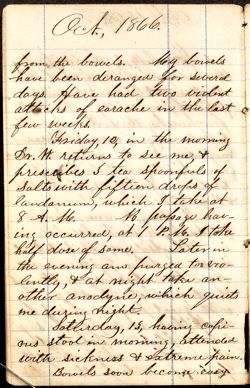 Oct, 1866.
from the bowels. My bowels
have been deranged for several
days. Have had two violent
attacks of earache in the last
few weeks.
Friday, 12, in the morning
Dr. W. returns to see me, &
prescribes 3 tea spoonfuls of
salts with fifteen drops of
laudanum, which I take at
8 A. M. No passage hav-
ing occurred, at 1 P. M. I take
half dose of same. Later in
the evening am purged too vio-
lently, & at night take an-
other anodyne, which quiets
me during night.
Saturday, 13, having copi-
ous stool in morning, attended
with sickness & extreme pain.
Bowels soon become easy